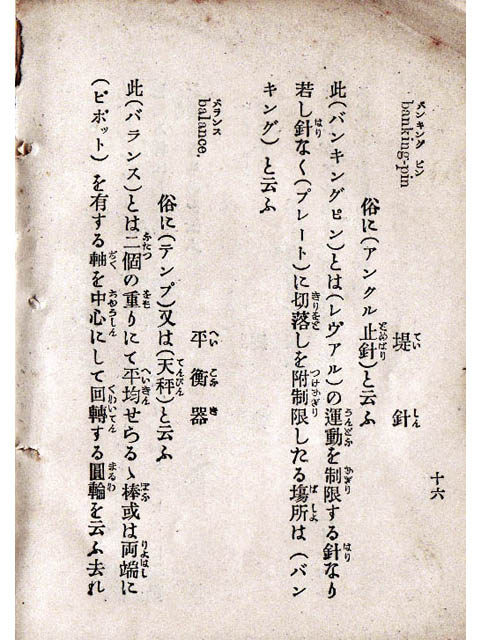 十六
banking-pin 堤針
俗に(アングル止針)と云ふ
此(バンキングピン)とは(レヴァル)の運動を制限する針なり
若し針なく(プレート)に切落しを附制限したる塲所は(バン
キング)と云ふ
balance. 平衡器
俗に(テンプ)又は(天秤)と云ふ
此(バランス)とは二個の重りにて平均せらるゝ棒或は両端に
(ピボット)を有する軸を中心にして回轉する圓輪を云ふ去れ